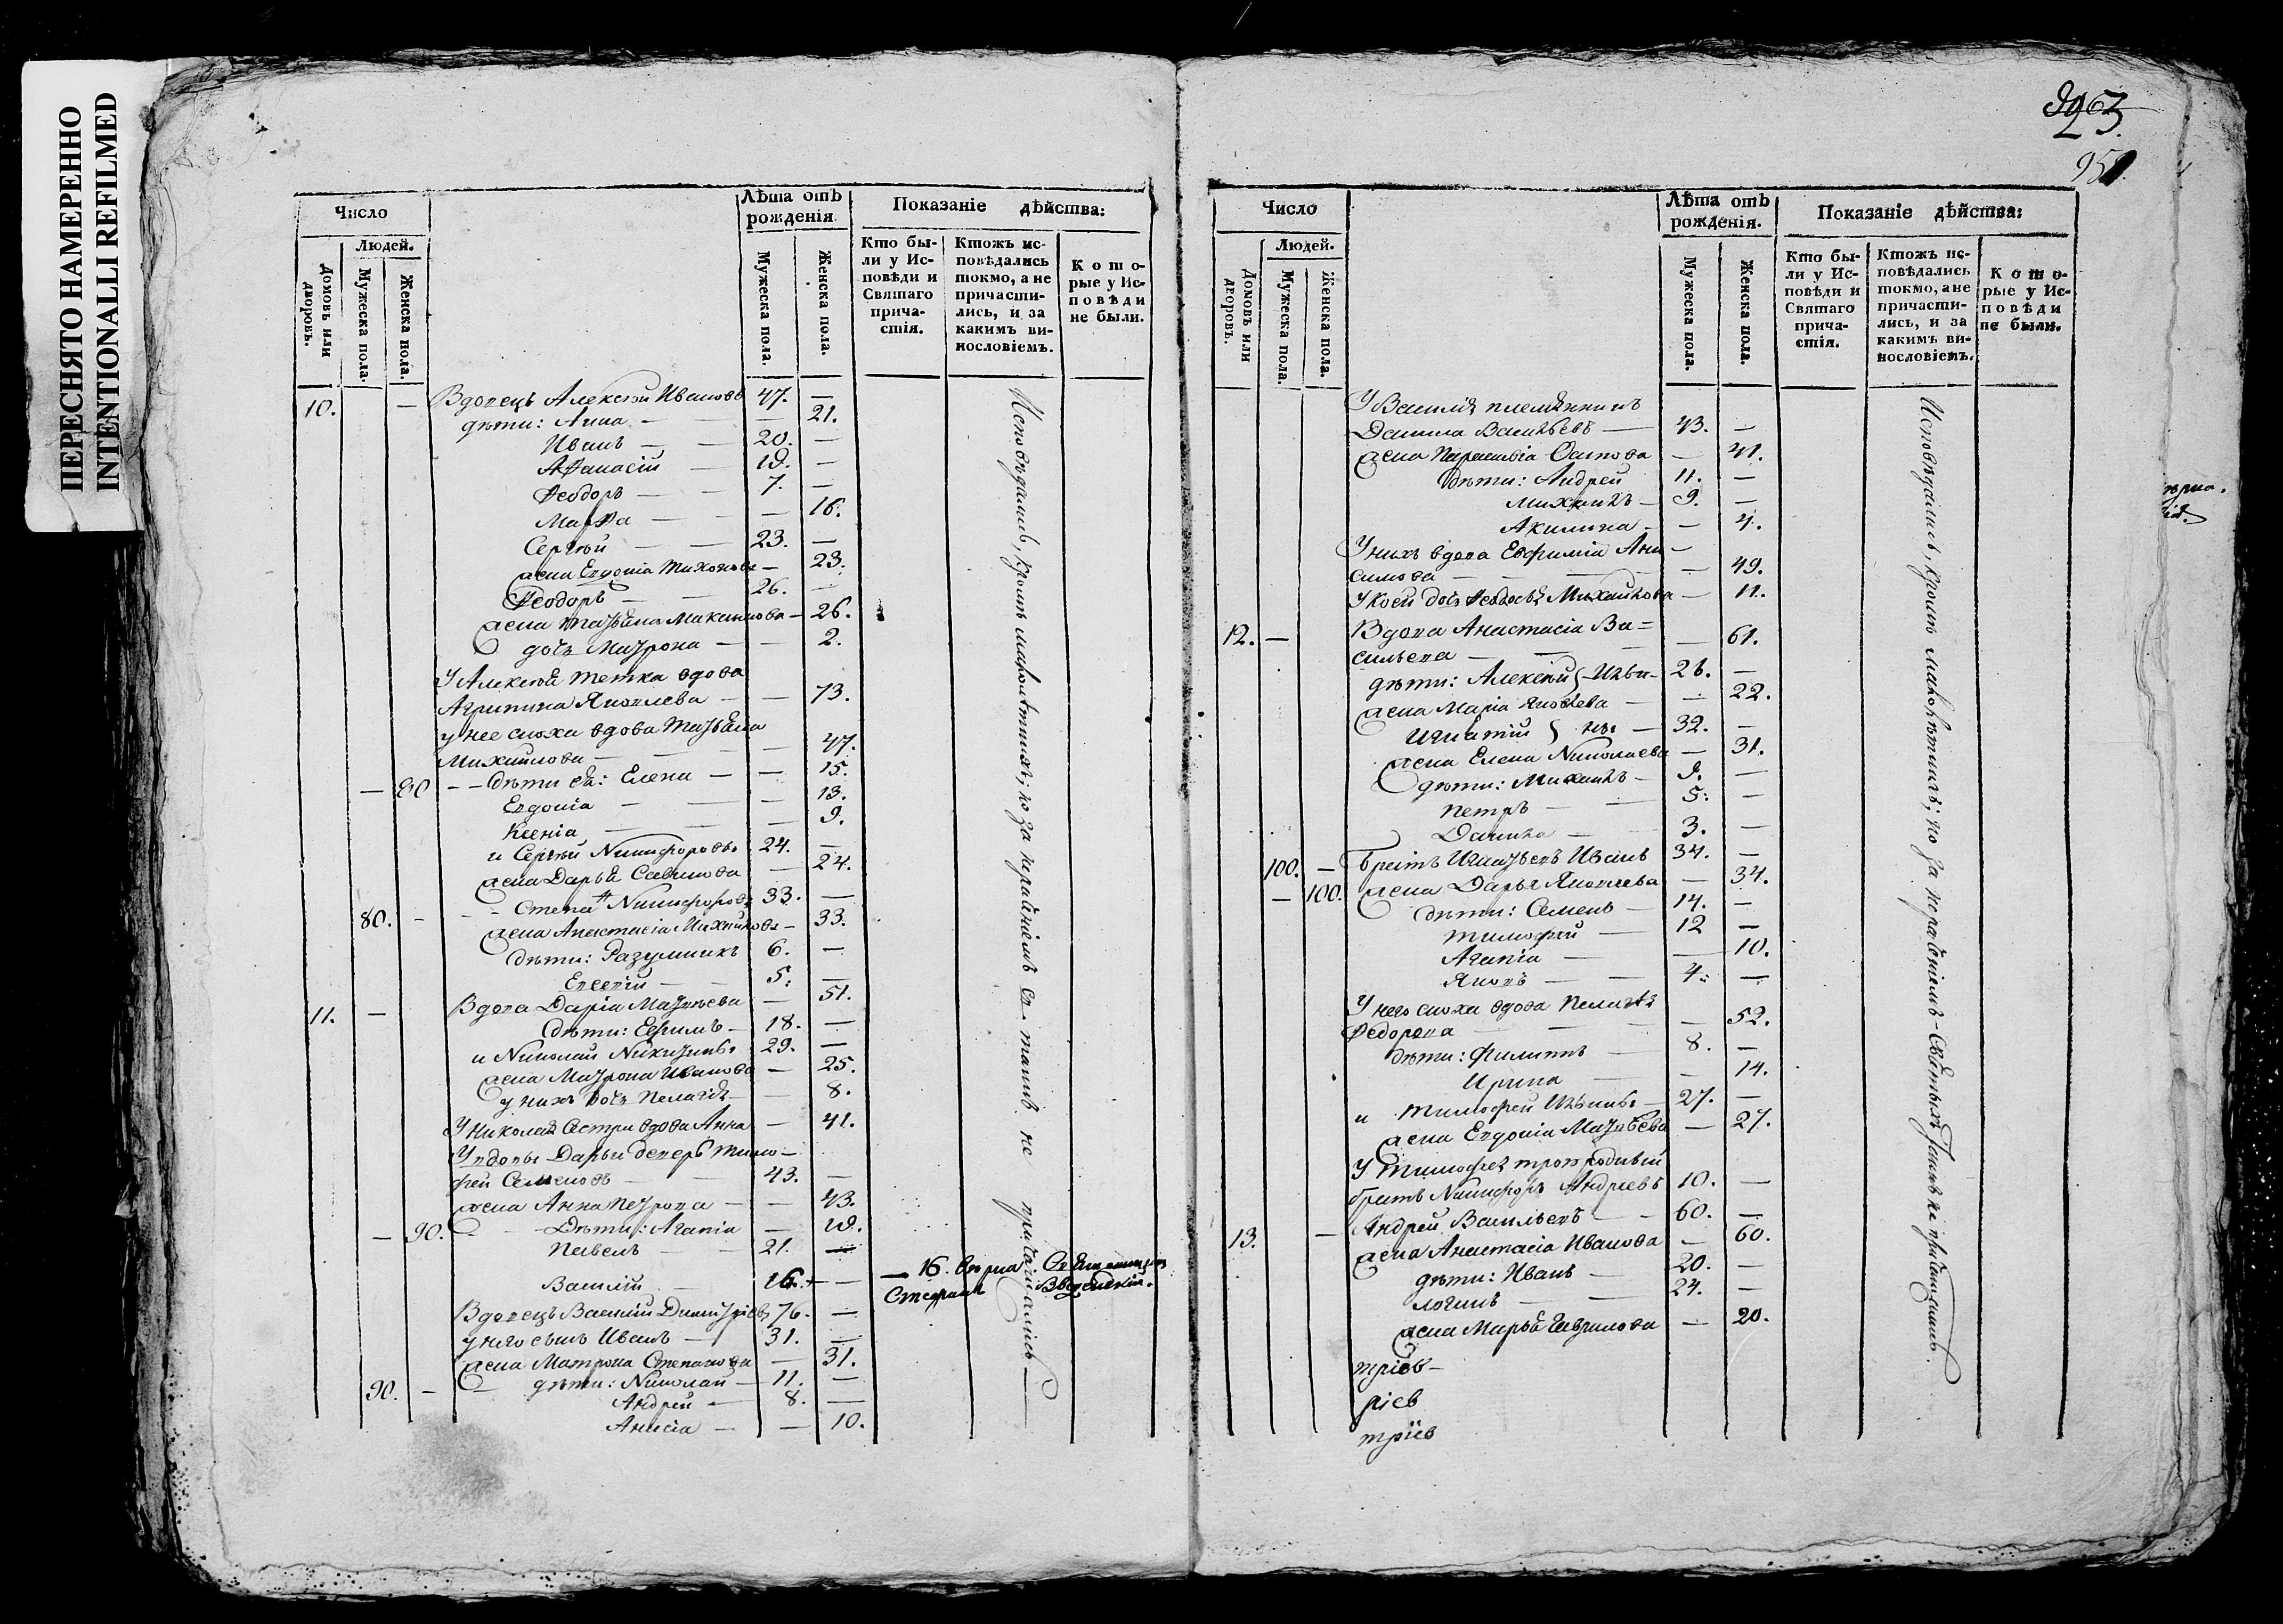 ПЕРЕСНЯТО НАМЕРЕННО
INTENTIONALLI REFILMED
23.
951
Число
Людей.
Домовъ или дворовъ.
Мужеска пола.
Женска пола.
Лѣта отъ рожденія.
Мужеска пола.
Женска пола.
Показаніе дѣйства:
Кто бы-
ли у Ис-
повѣди и
Святаго
прича-
стія.
Ктожъ ис-
повѣдались
токмо, а не
причасти-
лись, и за
какимъ ви-
нословіемъ.
Кото-
рые у Ис-
повѣди
не были.
10. — Вдовецъ Алексѣй Ивановъ 47. —
дѣти: Анна — — 21.
Иванъ — — 20. —
Афанасій — 19. —
Феодоръ — — 7. —
Марфа — — — 16.
Сергѣй — — 23. —
жена Евдокія Тихонова — 23.
Феодоръ — — 26. —
жена Татьяна Максимова — 26.
дочь Матрона — — 2.
У Алексѣя тетка вдова
Агрипина Яковлева — — 73.
у нее сноха вдова Татьяна
Михайлова — — — 47.
— 80 — дѣти ея: Елена — — 15.
Евдокія — — — 13.
Ксенія — — — 9.
и Сергѣй Никифоровъ 24. —
жена Дарья Савинова — 24.
80. - Степанъ Никифоровъ 33. —
жена Анастасія Михайлова — 33.
дѣти: Разумникъ 6. —
Евсевій — — 5. —
11. — Вдова Дарія Матвѣева — 51.
дѣти: Ефимъ — 18. —
и Николай Никитинъ 29. —
жена Матрона Иванова — 25.
у нихъ дочь Пелагія — — 8.
У Николая сестра вдова Анна — 41.
У вдовы Дарьи деверь Тимо-
фей Семеновъ — — 43. —
жена Анна Петрова — — 43.
— 90. дѣти: Агапія — 19.
Павелъ — — 21. —
Василій — — 16. — — 16.
Вдовецъ Василій Димитріевъ 76. —
у него сынъ Иванъ — 31. —
жена Матрона Степанова — 31.
90. — дѣти: Николай — 11. —
Андрей — 8. —
Анисія — — 10.
Исповѣдались, кромѣ малолѣтныхъ; но за нерадѣніемъ св. таинъ не причащались
Число
Людей.
Домовъ или дворовъ.
Мужеска пола.
Женска пола.
Лѣта отъ рожденія.
Мужеска пола.
Женска пола.
Показаніе дѣйства:
Кто бы-
ли у Ис-
повѣди и
Святаго
прича-
стія.
Ктожъ ис-
повѣдались
токмо, а не
причасти-
лись, и за
какимъ ви-
нословіемъ.
Кото-
рые у Ис-
повѣди
не были.
У Василія племянникъ
Данила Васильевъ — 43. —
жена Параскевія Осипова — 41.
дѣти: Андрей 11. —
Михаилъ — 9. —
Акилина — — 4.
У нихъ вдова Евфимія Ани-
симова — — — 49.
У коей дочь Феодосья Михайлова — 11.
12. — Вдова Анастасія Ва-
сильева — — — 61.
дѣти: Алексѣй 28. —
жена Марія Яковлева — — 22.
Игнатій — 32. —
жена Елена Николаева — 31.
дѣти: Михаилъ — 9. —
Петръ — — 5. —
Данила — 3. —
100. — братъ Игнатьевъ Иванъ 34. —
— 100. жена Дарья Яковлева — 34.
дѣти: Семенъ — 14. —
Тимофей — 12 —
Агапія — — 10.
Яковъ — — 4. —
У него сноха вдова Пелагія
Федорова — — — 52.
дѣти: Филиппъ — 8. —
Ирина — — 14.
и Тимофей Ильинъ — 27. —
жена Евдокія Матвѣева — 27.
У Тимофея троюродный
братъ Никифоръ Андреевъ 10. —
13. — Андрей Васильевъ — 60. —
жена Анастасія Иванова — 60.
дѣти: Иванъ — 20. —
Логинъ — — 24. —
жена Марья Гаврилова — 20.
тріев-
ріев
тріев
Исповѣдались, кромѣ малолѣтныхъ; но за нерадѣніемъ Святыхъ Таинъ не причащались.